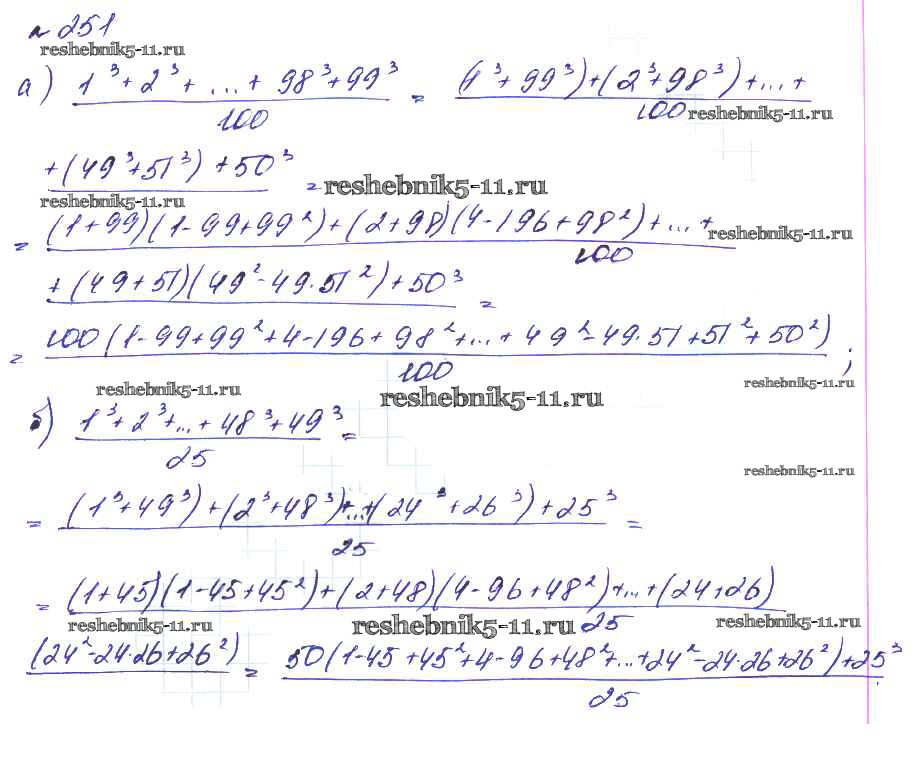 № 251
reshebnik5-11.ru
а) (1³+2³+...+98³+99³)/100 = ((1³+99³)+(2³+98³)+...+
100 reshebnik5-11.ru
+(49³+51³)+50³ = reshebnik5-11.ru
reshebnik5-11.ru
= (1+99)(1-99+99²)+(2+98)(4-196+98²)+...+ reshebnik5-11.ru
100
+(49+51)(49²-49·51²)+50³ =
= 100(1-99+99²+4-196+98²+...+49²-49·51+51²+50²)/100 ;
reshebnik5-11.ru reshebnik5-11.ru reshebnik5-11.ru
б) (1³+2³+...+48³+49³)/25 =
reshebnik5-11.ru
= ((1³+49³)+(2³+48³)+...+(24³+26³)+25³)/25 =
= (1+45)(1-45+45²)+(2+48)(4-96+48²)+...+(24+26)
reshebnik5-11.ru reshebnik5-11.ru 25 reshebnik5-11.ru
(24²-24·26+26²) = (50(1-45+45²+4-96+48²+...+24²-24·26+26²)+25³)/25